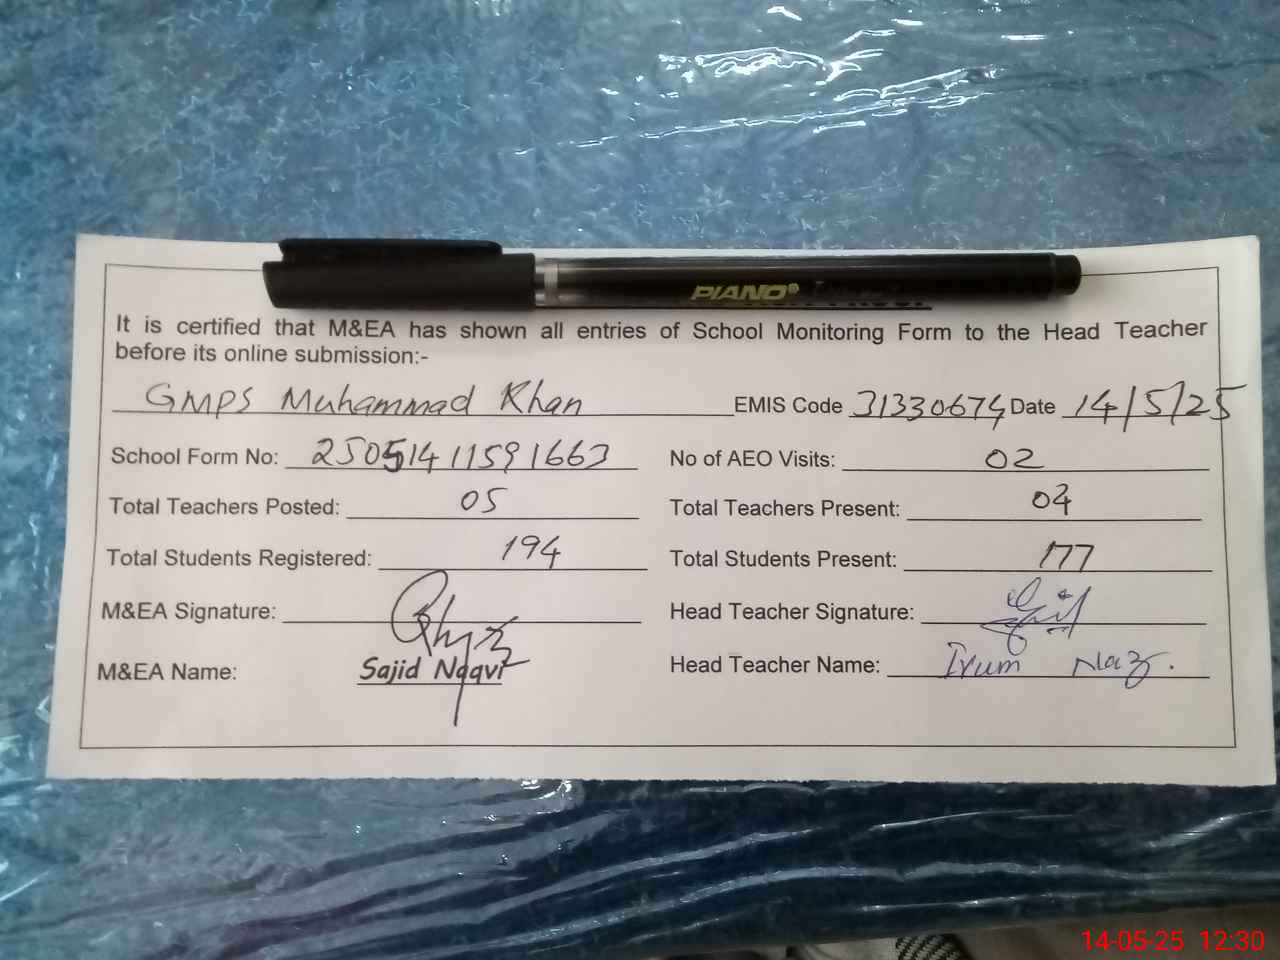 PIANO®
It is certified that M&EA has shown all entries of School Monitoring Form to the Head Teacher
before its online submission:-
GMPS Muhammad Khan EMIS Code 31330674 Date 14/5/25
School Form No: 25051411591663 No of AEO Visits: 02
Total Teachers Posted: 05 Total Teachers Present: 04
Total Students Registered: 194 Total Students Present: 177
M&EA Signature: Head Teacher Signature:
M&EA Name: Sajid Naqvi Head Teacher Name: Irum Naz.
14-05-25 12:30